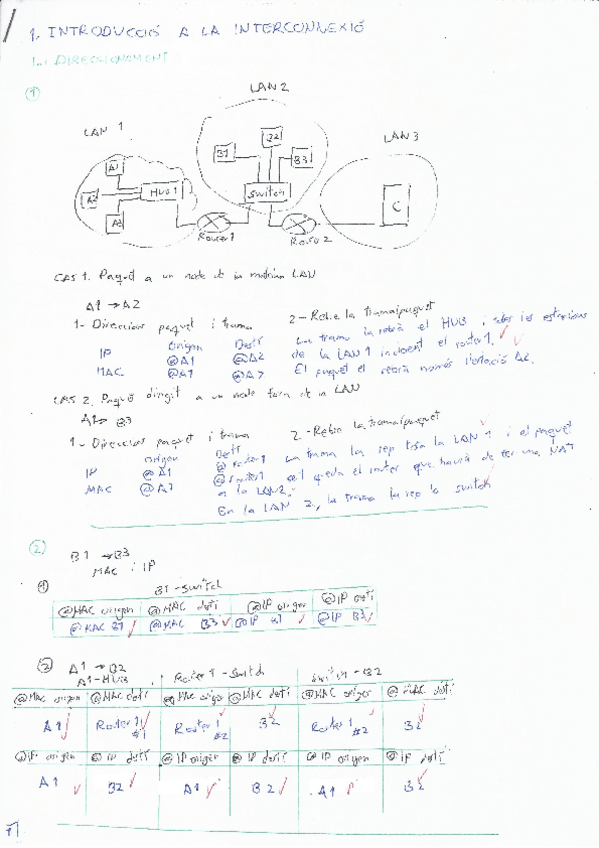 1. INTRODUCCIÓ A LA INTERCONNEXIÓ
1.1 DIRECCIONAMENT
1
LAN 2
LAN 1
LAN 3
B2
B1
B3
A1
HUB 1
A2
Switch
C
A3
Router 1
Router 2
CAS 1. Paquet a un node de la mateixa LAN
A1 → A2
1- Direccions paquet i trama
2- Rebre la trama/paquet
Origen Destí
IP @A1 @A2
MAC @A1 @A2
La trama la rebrà el HUB i totes les estacions
de la LAN 1 incloent el router 1.
El paquet el rebrà només l'estació A2.
CAS 2. Paquet dirigit a un node fora de la LAN
A1 → B3
1- Direccions paquet i trama
2.- Rebre la trama/paquet
Origen Destí
IP @A1 @router1
MAC @A1 @router1
La trama la rep tota la LAN 1 i el paquet
se'l queda el router que haurà de fer una NAT
a la LAN2.
En la LAN 2, la trama la rep lo switch
2
B1 → B3
MAC i IP
1
B1 - switch
@MAC origen @MAC destí @IP origen @IP destí
@MAC B1 @MAC B3 @IP B1 @IP B3
2 A1 → B2
A1-HUB Router 1 - Switch Switch - B2
@MAC origen @MAC destí @MAC origen @MAC destí @MAC origen @MAC destí
A1 Router 1 #1 Router 1 #2 B2 Router 1 #2 B2
@IP origen @IP destí @IP origen @IP destí @IP origen @IP destí
A1 B2 A1 B2 A1 B2
1